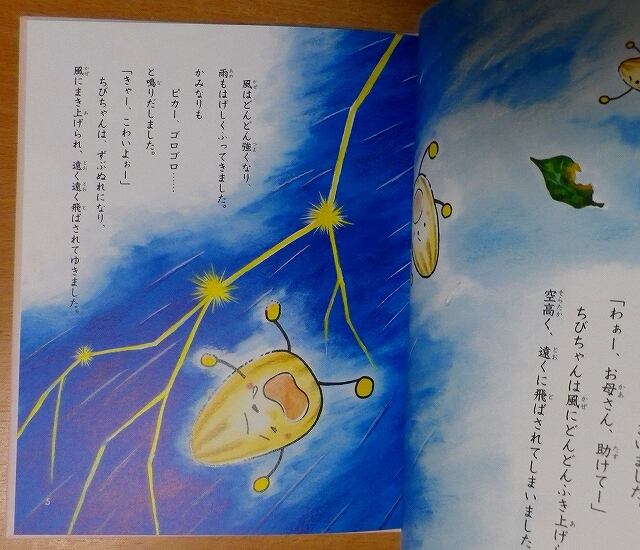 …ました
「わぁー、お母さん、助けてー」
ちびちゃんは風にどんどんふき上げ
空高く、遠くに飛ばされてしまいました
風はどんどん強くなり、
雨もはげしくふってきました。
かみなりも
ピカー、ゴロゴロ……
と鳴りだしました。
「きゃー、こわいよぉー」
ちびちゃんは、ずぶぬれになり、
風にまき上げられ、遠く遠く飛ばされてゆきました。
5